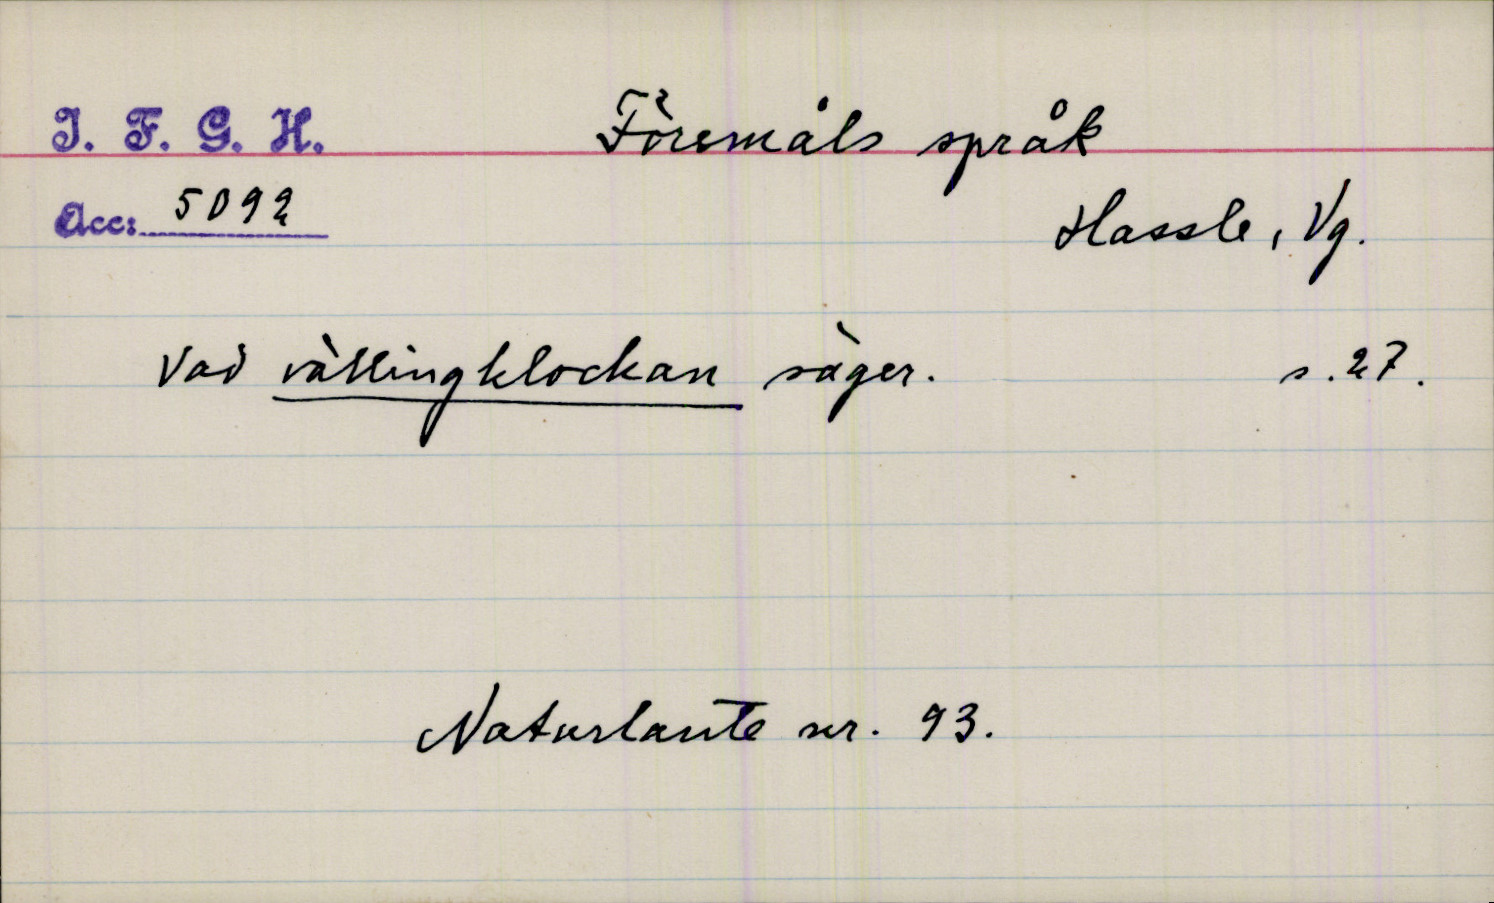 I. F. G. H.
Föremåls språk
Acc: 5092
Hassle, Vg.
Vad vällingklockan säger. s. 27.
Naturlaute nr. 93.